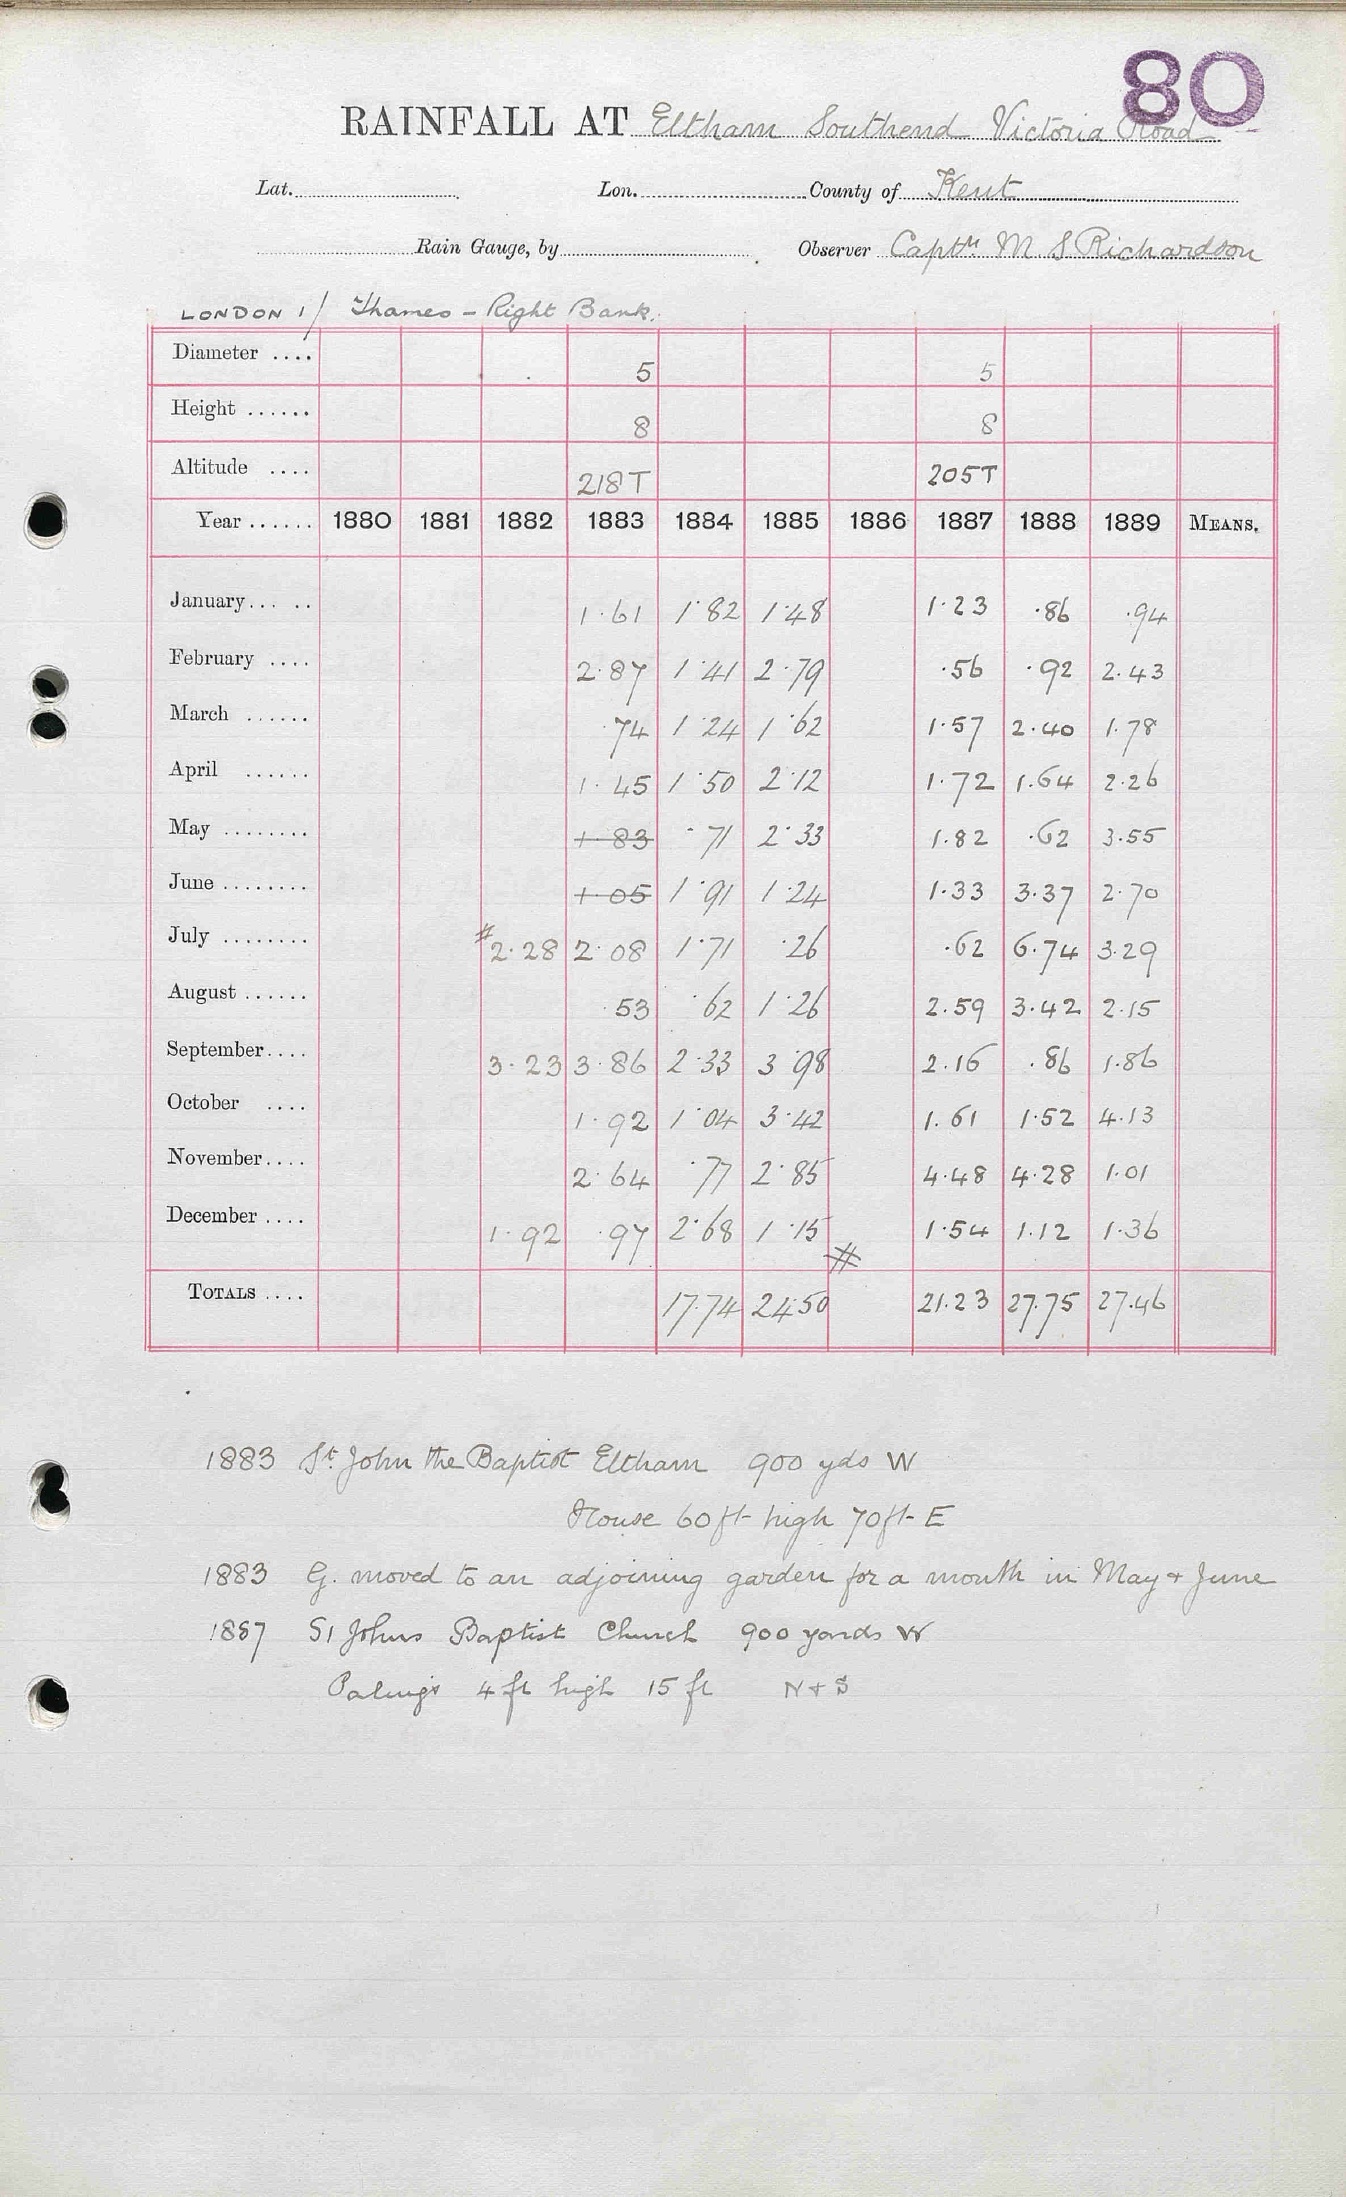 80
RAINFALL AT Eltham Southend Victoria Road
Lat. Lon. County of Kent
Rain Gauge, by Observer Captn M S Richardson
LONDON 1/ Thames - Right Bank.
Diameter .... 5 5
Height ...... 8 8
Altitude .... 218T 205T
Year ...... 1880 1881 1882 1883 1884 1885 1886 1887 1888 1889 MEANS.
January... .. 1.61 1.82 1.48 1.23 .86 .94
February .... 2.87 1.41 2.79 .56 .92 2.43
March ...... .74 1.24 1.62 1.57 2.40 1.78
April ...... 1.45 1.50 2.12 1.72 1.64 2.26
May ........ 1.83 .71 2.33 1.82 .62 3.55
June ........ 1.05 1.91 1.24 1.33 3.37 2.70
July ........ #2.28 2.08 1.71 .26 .62 6.74 3.29
August ...... .53 .62 1.26 2.59 3.42 2.15
September.... 3.23 3.86 2.33 3.98 2.16 .86 1.86
October .... 1.92 1.04 3.42 1.61 1.52 4.13
November.... 2.64 .77 2.85 4.48 4.28 1.01
December .... 1.92 .97 2.68 1.15 # 1.54 1.12 1.36
TOTALS .... 17.74 24.50 21.23 27.75 27.46
1883 St John the Baptist Eltham 900 yds W
House 60 ft high 70 ft E
1883 G. moved to an adjoining garden for a month in May + June
1887 St Johns Baptist Church 900 yards W
Palings 4 ft high 15 ft N + S